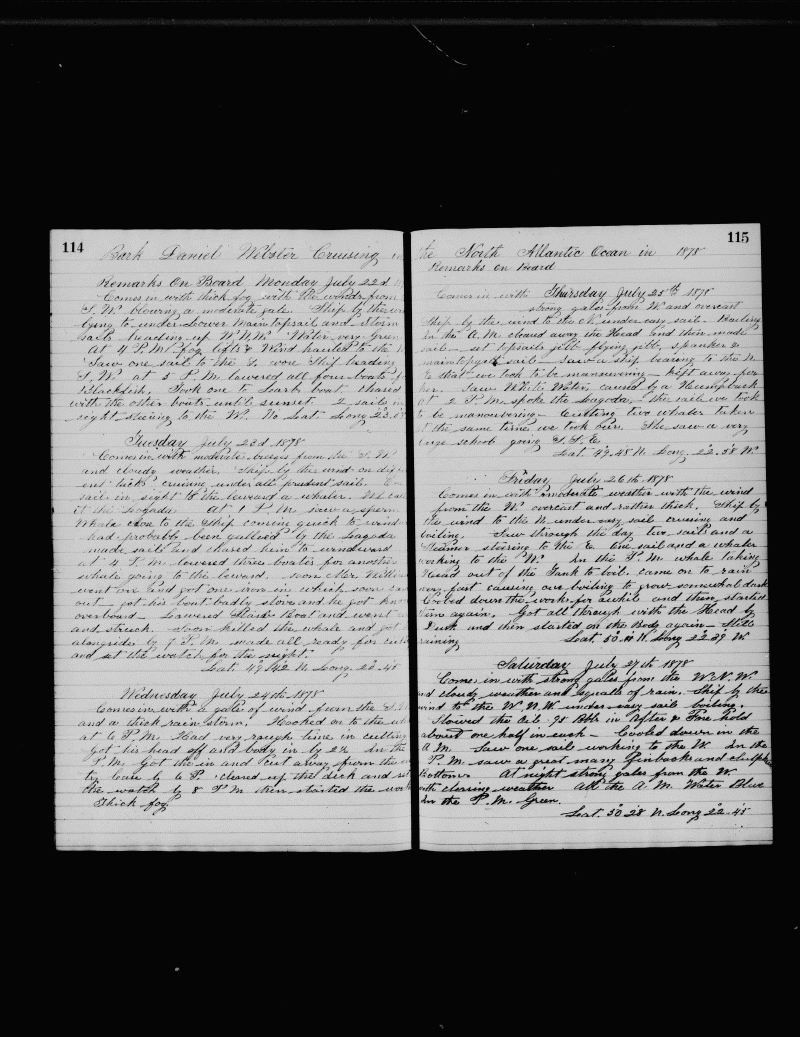 114
Bark Daniel Webster Cruising in
Remarks On Board Monday July 22d
Comes in with thick fog with the winds from
S.W. blowing a moderate gale. Ship by the
lying to under Lower Main topsail and storm
sails heading up W.N.W. Water very Green
At 4 P.M. fog lifts & Wind hauled to the
Saw one sail to the E. wore Ship heading
S.W. at 5 P.M. lowered all four boats
Blackfish. Took one to Starb boat chased
with the other boats until sunset. 2 sails in
sight steering to the W. No Lat. Long 23
Tuesday July 23d 1878
Comes in with moderate breezes from the S.W.
and cloudy weather. Ship by the wind on
ent tacks cruising under all prudent sail.
sail in sight to the leeward a whaler. We
it the Lagoda. At 1 P.M. saw a sperm
Whale close to the Ship coming quick to
had probably been gallied by the Lagoda
made sail and chased him to windward
at 4 P.M. lowered three boats for another
whale going to the leward. soon Mr.
went on and got one iron in which soon
out - got his boat badly stove and he got
overboard - Lowered Starb Boat and went
and struck. Soon killed the whale and got
alongside by 7 P.M. made all ready for
and set the watch for the night.
Lat. 49.42 N. Long. 23.40
Wednesday July 24th 1878
Comes in with a gale of wind from the
and a thick rain storm. Hooked on to the
at 6 P.M. Had very rough time in cutting
Got his head off and body in by 2 In the
P.M. Got the in and Cut away from the
by 6 P. cleared up the deck and set
the watch by 8 P.M. then started the work
Thick fog
115
the North Atlantic Ocean in 1878
Remarks on Board
Thursday July 25th 1878
Comes in with strong gales from W. and overcast
Ship by the wind to the N. under easy sail - Boiling
in the A.M. cleared away the Head and then made
sail - set topsails jibb flying jibb, spanker &
main topgall sail. Saw a ship bearing to the N.
E. that we took to be manouvering - kept away for
her. Saw White Water caused by a Humpback
at 2 P.M. spoke the Lagoda - the sail we took
to be manouvering - Cutting two whales taken
at the same time we took our. She saw a very
large school going S.S.E.
Lat 49.48 N. Long. 22.58 W.
Friday July 26th 1878
Comes in with moderate weather with the wind
from the W. overcast and rather thick. Ship by
the wind to the N under easy sail cruising and
boiling. Saw through the day two sails and a
Steamer steering to the E. One sail and a whaler
working to the W. In the P.M. whale taking
Head out of the Tank to boil. came on to rain
very fast causing our boiling to grow somewhat dark
Cooled down the works for awhile and then started
them again. Got all through with the Head by
Dusk and then started on the Body again - Still
raining Lat. 50. N. Long 22.29 W.
Saturday July 27th 1878
Comes in with strong gales from the W.N.W.
and cloudy weather and squalls of rain. Ship by the
wind to the W.N.W. under easy sail boiling.
Stowed the Oil 75 Bbls in After & Fore hold
about one half in each - Cooled down in the
A.M. Saw one sail working to the W. In the
P.M. saw a great many finbacks and sulphur
bottoms. At night strong gales from the W.
with clearing weather All the A.M. Water Blue
In the P.M. Green.
Lat. 50.28 N. Long 22.45